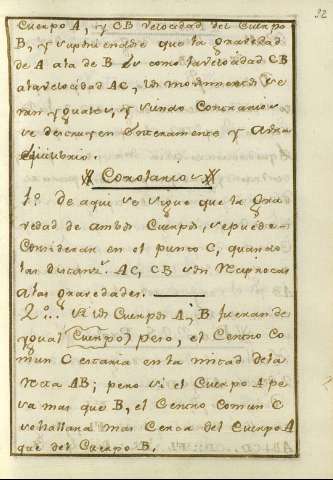 22
Cuerpo A, y CB velocidad del Cuerpo
B, y suponiendo que la gravedad
de A a la de B es como la velocidad CB
a la velocidad AC, los movimientos se
ran yguales, y siendo Contrarios
se destruyen enteramente y avra
equilibrio.
Corolario
1.º De aqui se sigue que la gra
vedad de ambos Cuerpos, se puede
Considerar en el punto C, quando
las distanz.s AC, CB son reciprocas
a las gravedades.
2.º Si los Cuerpos A, B fueran de
ygual Cuerpo, pero, el Centro Co
mun C estaria en la mitad de la
recta AB; pero si el Cuerpo A pe
sa mas que B, el Centro Comun C
se hallara mas Cerca del Cuerpo A
que del Cuerpo B.